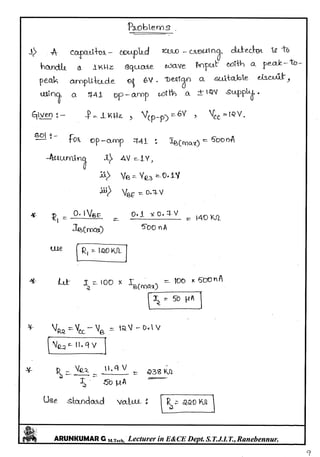 Problems
1) A capacitor-coupled zero-crossing detector is to
handle a 1KHz square wave input with a peak-to-
peak amplitude of 6V. Design a suitable circuit,
using a 741 op-amp with a ±12V supply.
Given :- f = 1KHz , V(p-p) = 6V , Vcc = 12V.
Sol :- For op-amp 741 : IB(max) = 500nA
Assuming i) ΔV = 1V,
ii) VB = VR3 = 0.1V
iii) VBE = 0.7V
* R1 = 0.1VBE / IB(max) = 0.1 x 0.7V / 500nA = 140KΩ
use R1 = 120KΩ
* Let I2 = 100 x IB(max) = 100 x 500nA
I2 = 50 μA
* VR2 = Vcc - VB = 12V - 0.1V
VR2 = 11.9V
* R2 = VR2 / I2 = 11.9V / 50μA = 238KΩ
Use standard value : R2 = 220KΩ
ARUNKUMAR G M.Tech, Lecturer in E&CE Dept. S.T.J.I.T., Ranebennur.
9